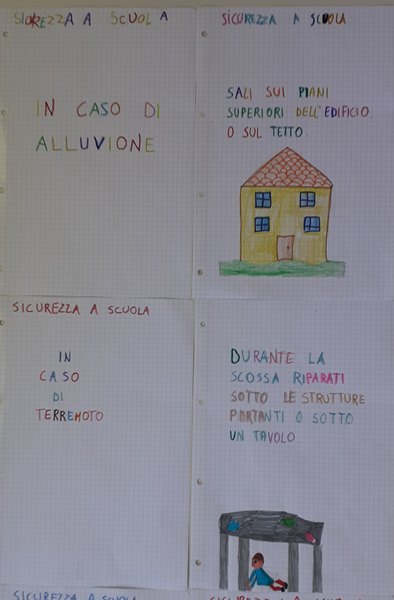 SICUREZZA A SCUOLA
IN CASO DI
ALLUVIONE
SICUREZZA A SCUOLA
SALI SUI PIANI
SUPERIORI DELL'EDIFICIO
O SUL TETTO.
SICUREZZA A SCUOLA
IN
CASO
DI
TERREMOTO
DURANTE LA
SCOSSA RIPARATI
SOTTO LE STRUTTURE
PORTANTI O SOTTO
UN TAVOLO.
SICUREZZA A SCUOLA
SICUREZZA A SCUOLA